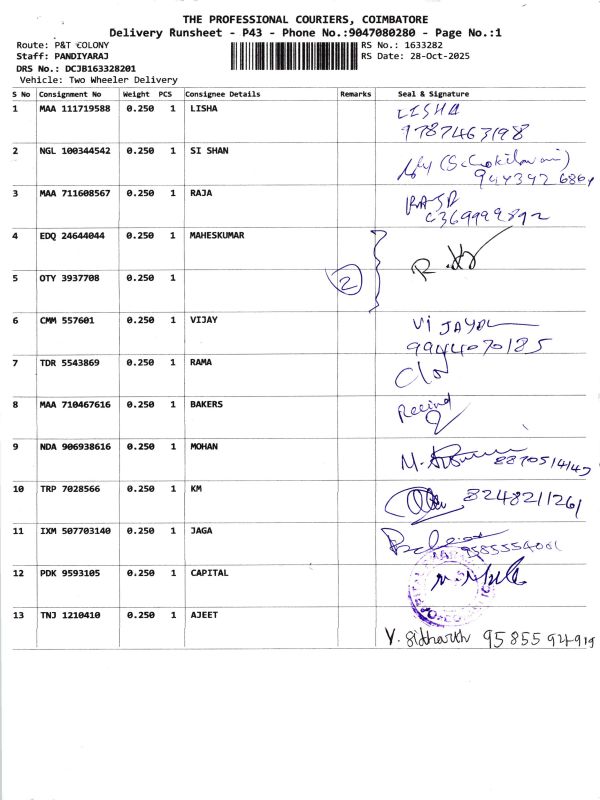 THE PROFESSIONAL COURIERS, COIMBATORE
Delivery Runsheet - P43 - Phone No.:9047080280 - Page No.:1
Route: P&T COLONY
Staff: PANDIYARAJ
DRS No.: DCJB163328201
Vehicle: Two Wheeler Delivery
RS No.: 1633282
RS Date: 28-Oct-2025
S No Consignment No Weight PCS Consignee Details Remarks Seal & Signature
1 MAA 111719588 0.250 1 LISHA LISHA
9787463198
2 NGL 100344542 0.250 1 SI SHAN
3 MAA 711608567 0.250 1 RAJA
4 EDQ 24644044 0.250 1 MAHESKUMAR
5 OTY 3937708 0.250 1 2
6 CMM 557601 0.250 1 VIJAY
9944070185
7 TDR 5543869 0.250 1 RAMA
8 MAA 710467616 0.250 1 BAKERS
9 NDA 906938616 0.250 1 MOHAN
10 TRP 7028566 0.250 1 KM 8248211261
11 IXM 507703140 0.250 1 JAGA
12 PDK 9593105 0.250 1 CAPITAL
13 TNJ 1210410 0.250 1 AJEET
V. Siddharth 95855 94919